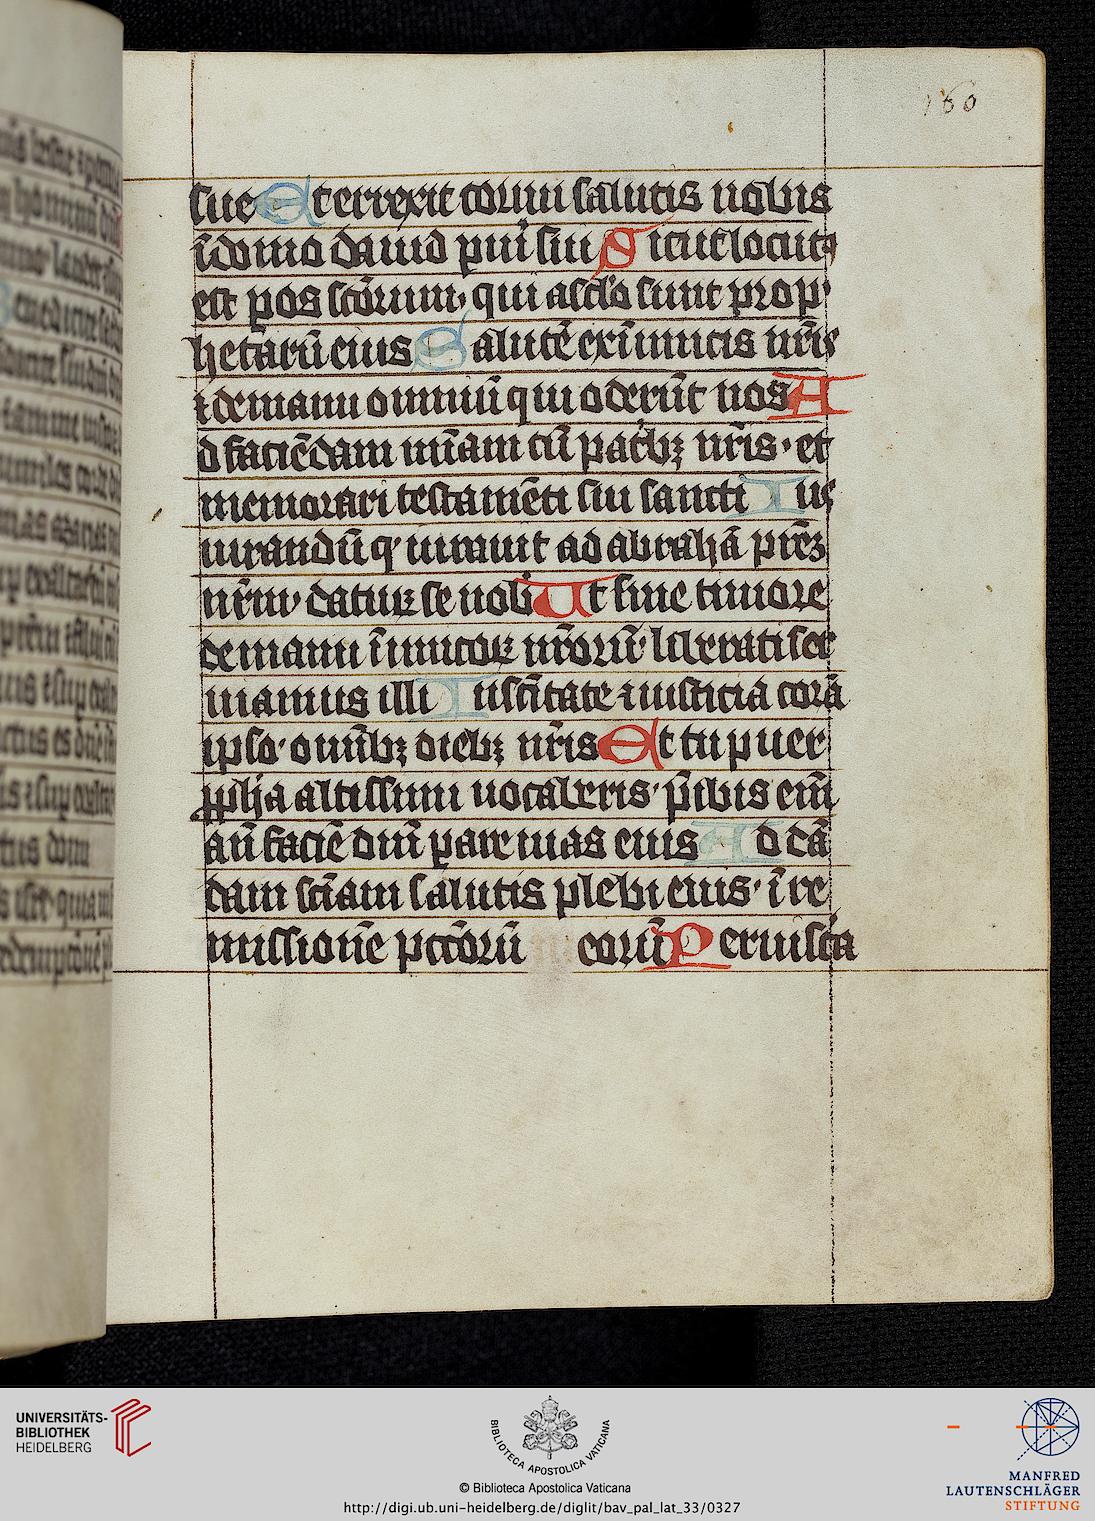 160
sue Et errexit cornu salutis nobis
ī domo dauid pūi sui Sicut locutꝰ
est p os sc̄orum· qui a sclo sunt prop
hetarū eius Salutē ex īimicis nr̄is
⁊ de manu omniū qui oderūt nos A
d faciēdam mīam cū patbꝫ nr̄is· et
memorari testamēti sui sancti Ius
iurandū qͥ iurauit ad abrahā prēꝫ
nr̄m· daturꝝ se nob Ut sine timore
de manu īimicoꝝ nr̄orū· liberati ser
uiamus illi In scītate ⁊ iusticia corā
ipso· omībꝫ diebꝫ nr̄is Et tu puer
ꝓpha altissimi uocaberis· p̄ibis em̄
an̄ faciē dn̄i parare uias eius Ad dā
dam scīam salutis plebi eius· ī re
missionē pcc̄orū eorū Per uisc̄a
UNIVERSITÄTS-
BIBLIOTHEK
HEIDELBERG
BIBLIOTECA APOSTOLICA VATICANA
© Biblioteca Apostolica Vaticana
http://digi.ub.uni-heidelberg.de/diglit/bav_pal_lat_33/0327
MANFRED
LAUTENSCHLÄGER
STIFTUNG